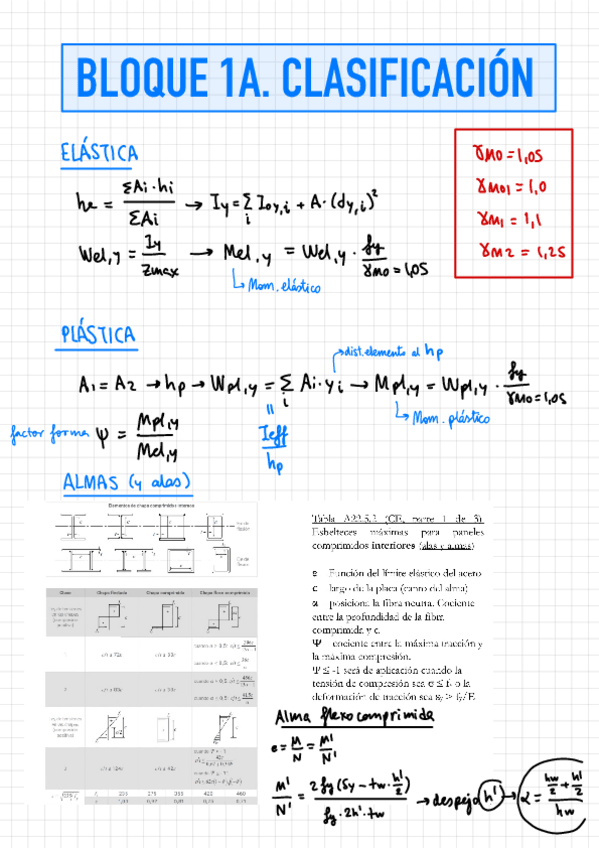 BLOQUE 1A. CLASIFICACIÓN
ELÁSTICA
he = ΣAi·hi / ΣAi → Iy = Σi Ioy,i + A·(dy,i)²
Wel,y = Iy / Zmax → Mel,y = Wel,y · fy / γM0 = 1,05
↳ Mom. elástico
γM0 = 1,05
γM01 = 1,0
γM1 = 1,1
γM2 = 1,25
PLÁSTICA
→ dist. elemento al hp
A1 = A2 → hp → Wpl,y = Σi Ai·yi → Mpl,y = Wpl,y · fy / γM0 = 1,05
↳ Mom. plástico
factor forma Ψ = Mpl,y / Mel,y
= Ieff / hp
ALMAS (y alas)
Elementos de chapa comprimidos internos
Clase Chapa flectada Chapa comprimida Chapa flexo comprimida
235 275 355 420 460
Tabla A22.5.2 (CE, parte 1 de 3)
Esbelteces máximas para paneles
comprimidos interiores (alas y almas)
e Función del límite elástico del acero
c largo de la placa (canto del alma)
α posiciona la fibra neutra. Cociente
entre la profundidad de la fibra
comprimida y c.
Ψ cociente entre la máxima tracción y
la máxima compresión.
Ψ ≤ -1 será de aplicación cuando la
tensión de compresión sea σ ≤ fy o la
deformación de tracción sea εy > fy/E
Alma flexocomprimida
e = M/N = M'/N'
M'/N' = 2fy(Sy - tw·h'/2) / fy·2h'·tw → despejo h' → α = (hw/2 + h'/2) / hw